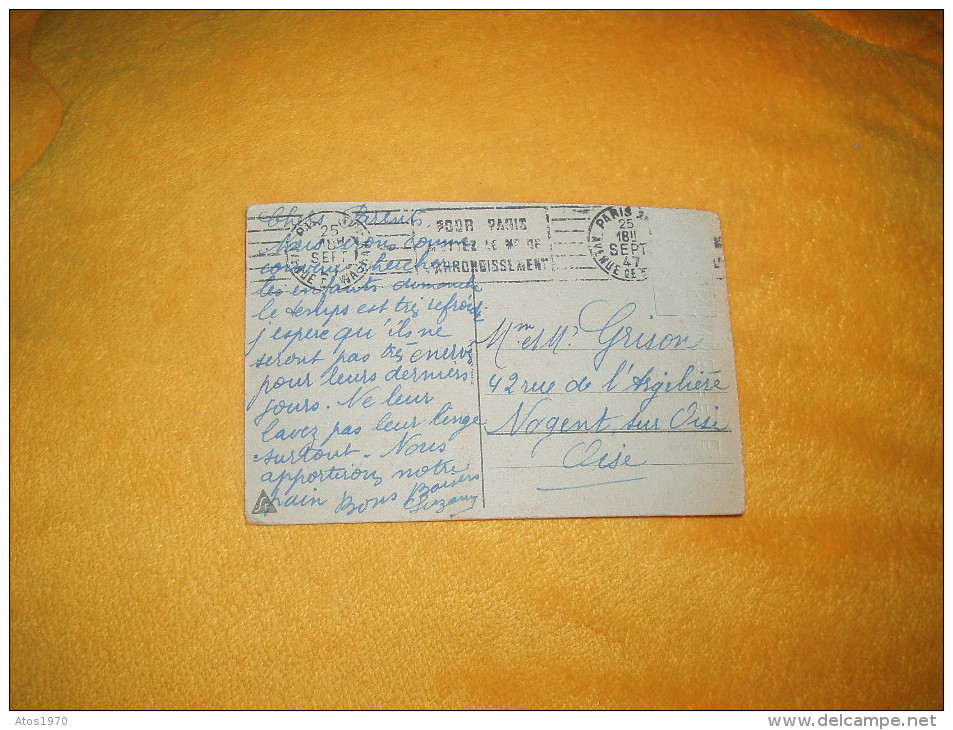 Chers Parents
Nous irons comme
convenu chercher
les enfants dimanche
le temps est très refroidi
j'espère qu'ils ne
seront pas très énervés
pour leurs derniers
jours. Ne leur
lavez pas leur linge
surtout. Nous
apporterons notre
pain Bons Baisers
Suzany
PARIS
25
18H
SEPT
AVENUE DE WAGRAM
POUR PARIS
METTEZ LE Nº DE
L'ARRONDISSEMENT
PARIS
25
18H
SEPT
47
AVENUE DE
Mme et Mr Grison
42 rue de l'Argilière
Nogent sur Oise
Oise
Atos1970
delcampe.net